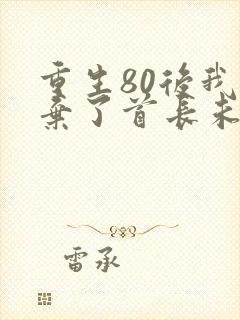 重生80後我
棄了首長未
雷承